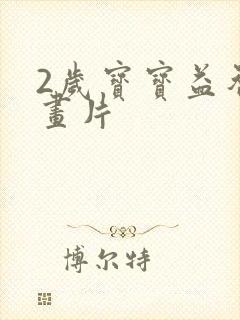 2歲寶寶益
畫片
博尔特